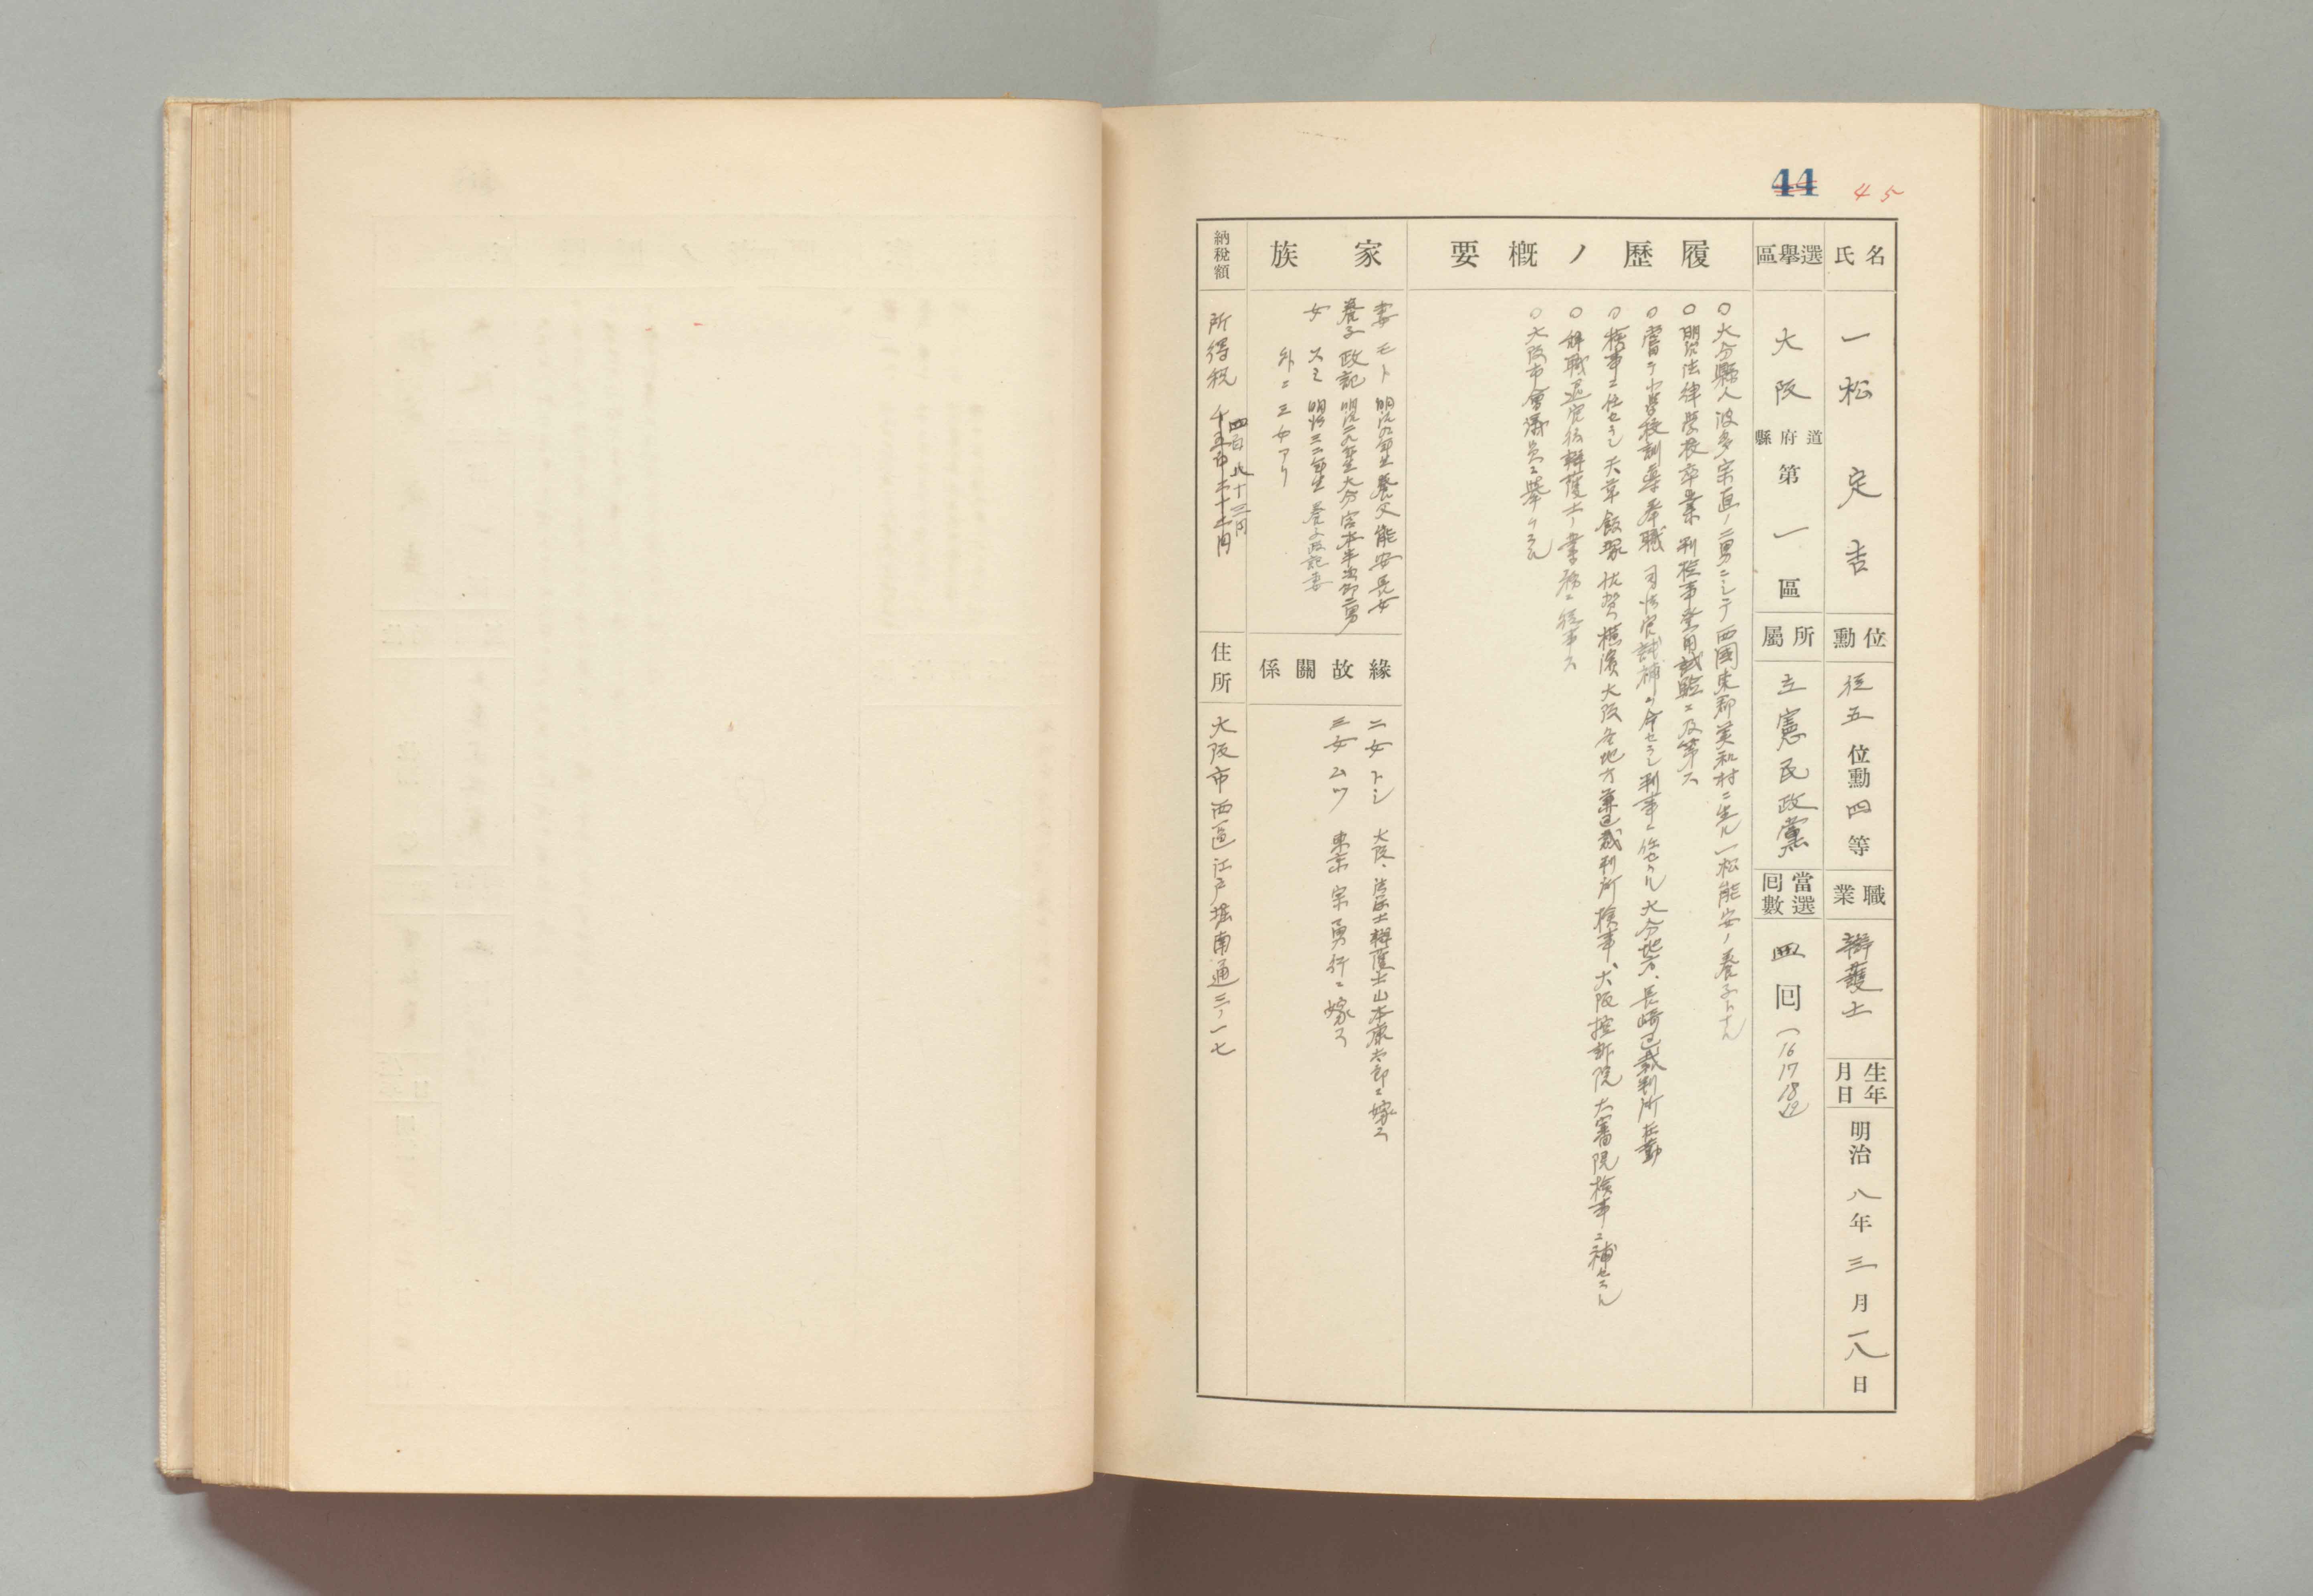 44 45
氏名
一松定吉
位勳
従五位勳四等
職業
辯護士
生年月日
明治八年三月一八日
選擧區
大阪
道府縣
第一區
所屬
立憲民政黨
當選回數
四回(16 17 18 19)
履歷ノ概要
○大分縣人波多宗直ノ二男ニシテ西國東郡美和村ニ生ル一松能安ノ養子トナル
○明治法律學校卒業判檢事登用試驗ニ及第ス
○嘗テ小學校訓導奉職司法官試補ヲ命セラレ判事ニ任セラル大分地方、長崎區裁判所在勤
○檢事ニ任セラレ天草飯塚佐賀橫濱大阪各地方兼區裁判所檢事、大阪控訴院大審院檢事ニ補セラル
○辭職退官後辯護士ノ業務ニ從事ス
○大阪市會議員ニ擧ケラル
家族
妻 モト 明治九年生養父能安長女
養子 政記 明治二九年生大分宮本半治郎二男
女 スミ 明治三二年生養子政記妻
外ニ三女アリ
緣故關係
二女トシ 大阪、法學士辯護士山本康太郎ニ嫁ス
三女ムツ 東京宗勇行ニ嫁ス
納稅額
所得税
四百八十三円
住所
大阪市西區江戸堀南通三ノ一七